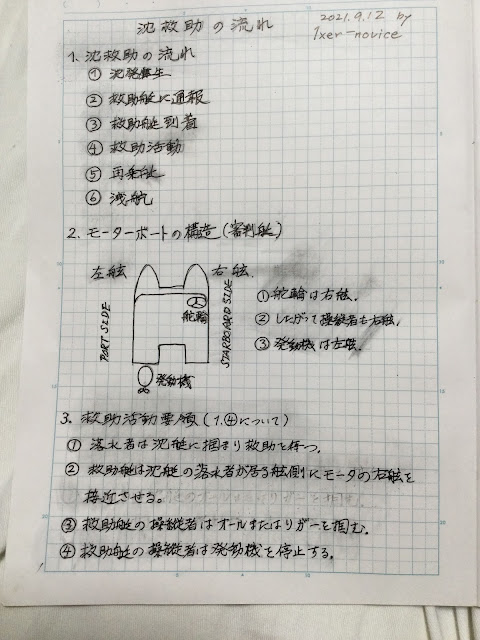 沈救助の流れ
2021.9.12 by
1xer-novice
1. 沈救助の流れ
① 沈発生
② 救助艇に通報
③ 救助艇到着
④ 救助活動
⑤ 再乗艇
⑥ 洩航
2. モーターボートの構造(審判艇)
左舷 右舷
PORT SIDE
舵輪
STARBOARD SIDE
発動機
① 舵輪は右舷。
② したがって操縦者も右舷。
③ 発動機は左舷。
3. 救助活動要領(1.④について)
① 落水者は沈艇に掴まり救助を待つ。
② 救助艇は沈艇の落水者が居る舷側にモータの右舷を
接近させる。
③ 救助艇の操縦者はオールまたはリガーを掴む。
④ 救助艇の操縦者は発動機を停止する。